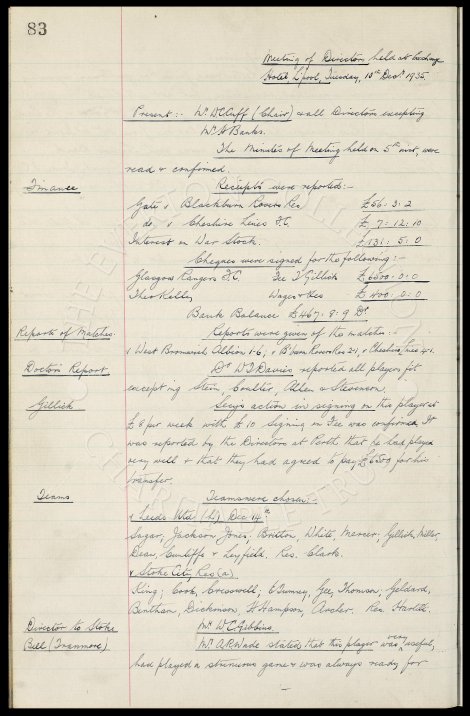 83
Meeting of Directors held at Exchange
Hotel, L'pool, Tuesday, 10th Decr 1935.
Present :- Mr W C Cuff (Chair) & all Directors excepting
Mr A Banks.
The Minutes of Meeting held on 5th inst, were
read & confirmed.
Finance Receipts were reported :-
Gate v Blackburn Rovers Res £56 : 3 : 2
do. v Cheshire Lines F.C. £ 7 : 12 : 10
Interest on War Stock. £131 : 5 : 0
Cheques were signed for the following :-
Glasgow Rangers F.C. Fee T Gillick £6500 : 0 : 0
Theo Kelly Wages & Fees £400 : 0 : 0
Bank Balance £467 : 8 : 9 Dr.
Reports of Matches. Reports were given of the matches :-
v West Bromwich Albion 1-6; v B'burn Rovers Res 2-1, v Cheshire Lines
Doctor's Report Dr W J Davies reported all players fit
excepting Stein, Coulter, Allen & Stevenson.
Gillick Secy's action in signing on this player at
£8 per week with £10 Signing on Fee was confirmed. It
was reported by the Directors at Perth that he had played
very well & that they had agreed to pay £6500 for his
transfer.
Teams Teams were chosen :-
v Leeds Utd (h) Dec 14th
Sagar, Jackson, Jones, Britton, White, Mercer; Gillick, Miller,
Dean, Cunliffe & Leyfield. Res. Clark.
v Stoke City Res (a)
King; Cook, Cresswell; Gee, Thomson, Geldard,
Bentham, Dickinson, H Hampson, Archer. Res.
Director to Stoke Mr W C Gibbins.
Bell (Tranmere) Mr A R Wade stated that this player was very useful,
had played a strenuous game & was always ready for